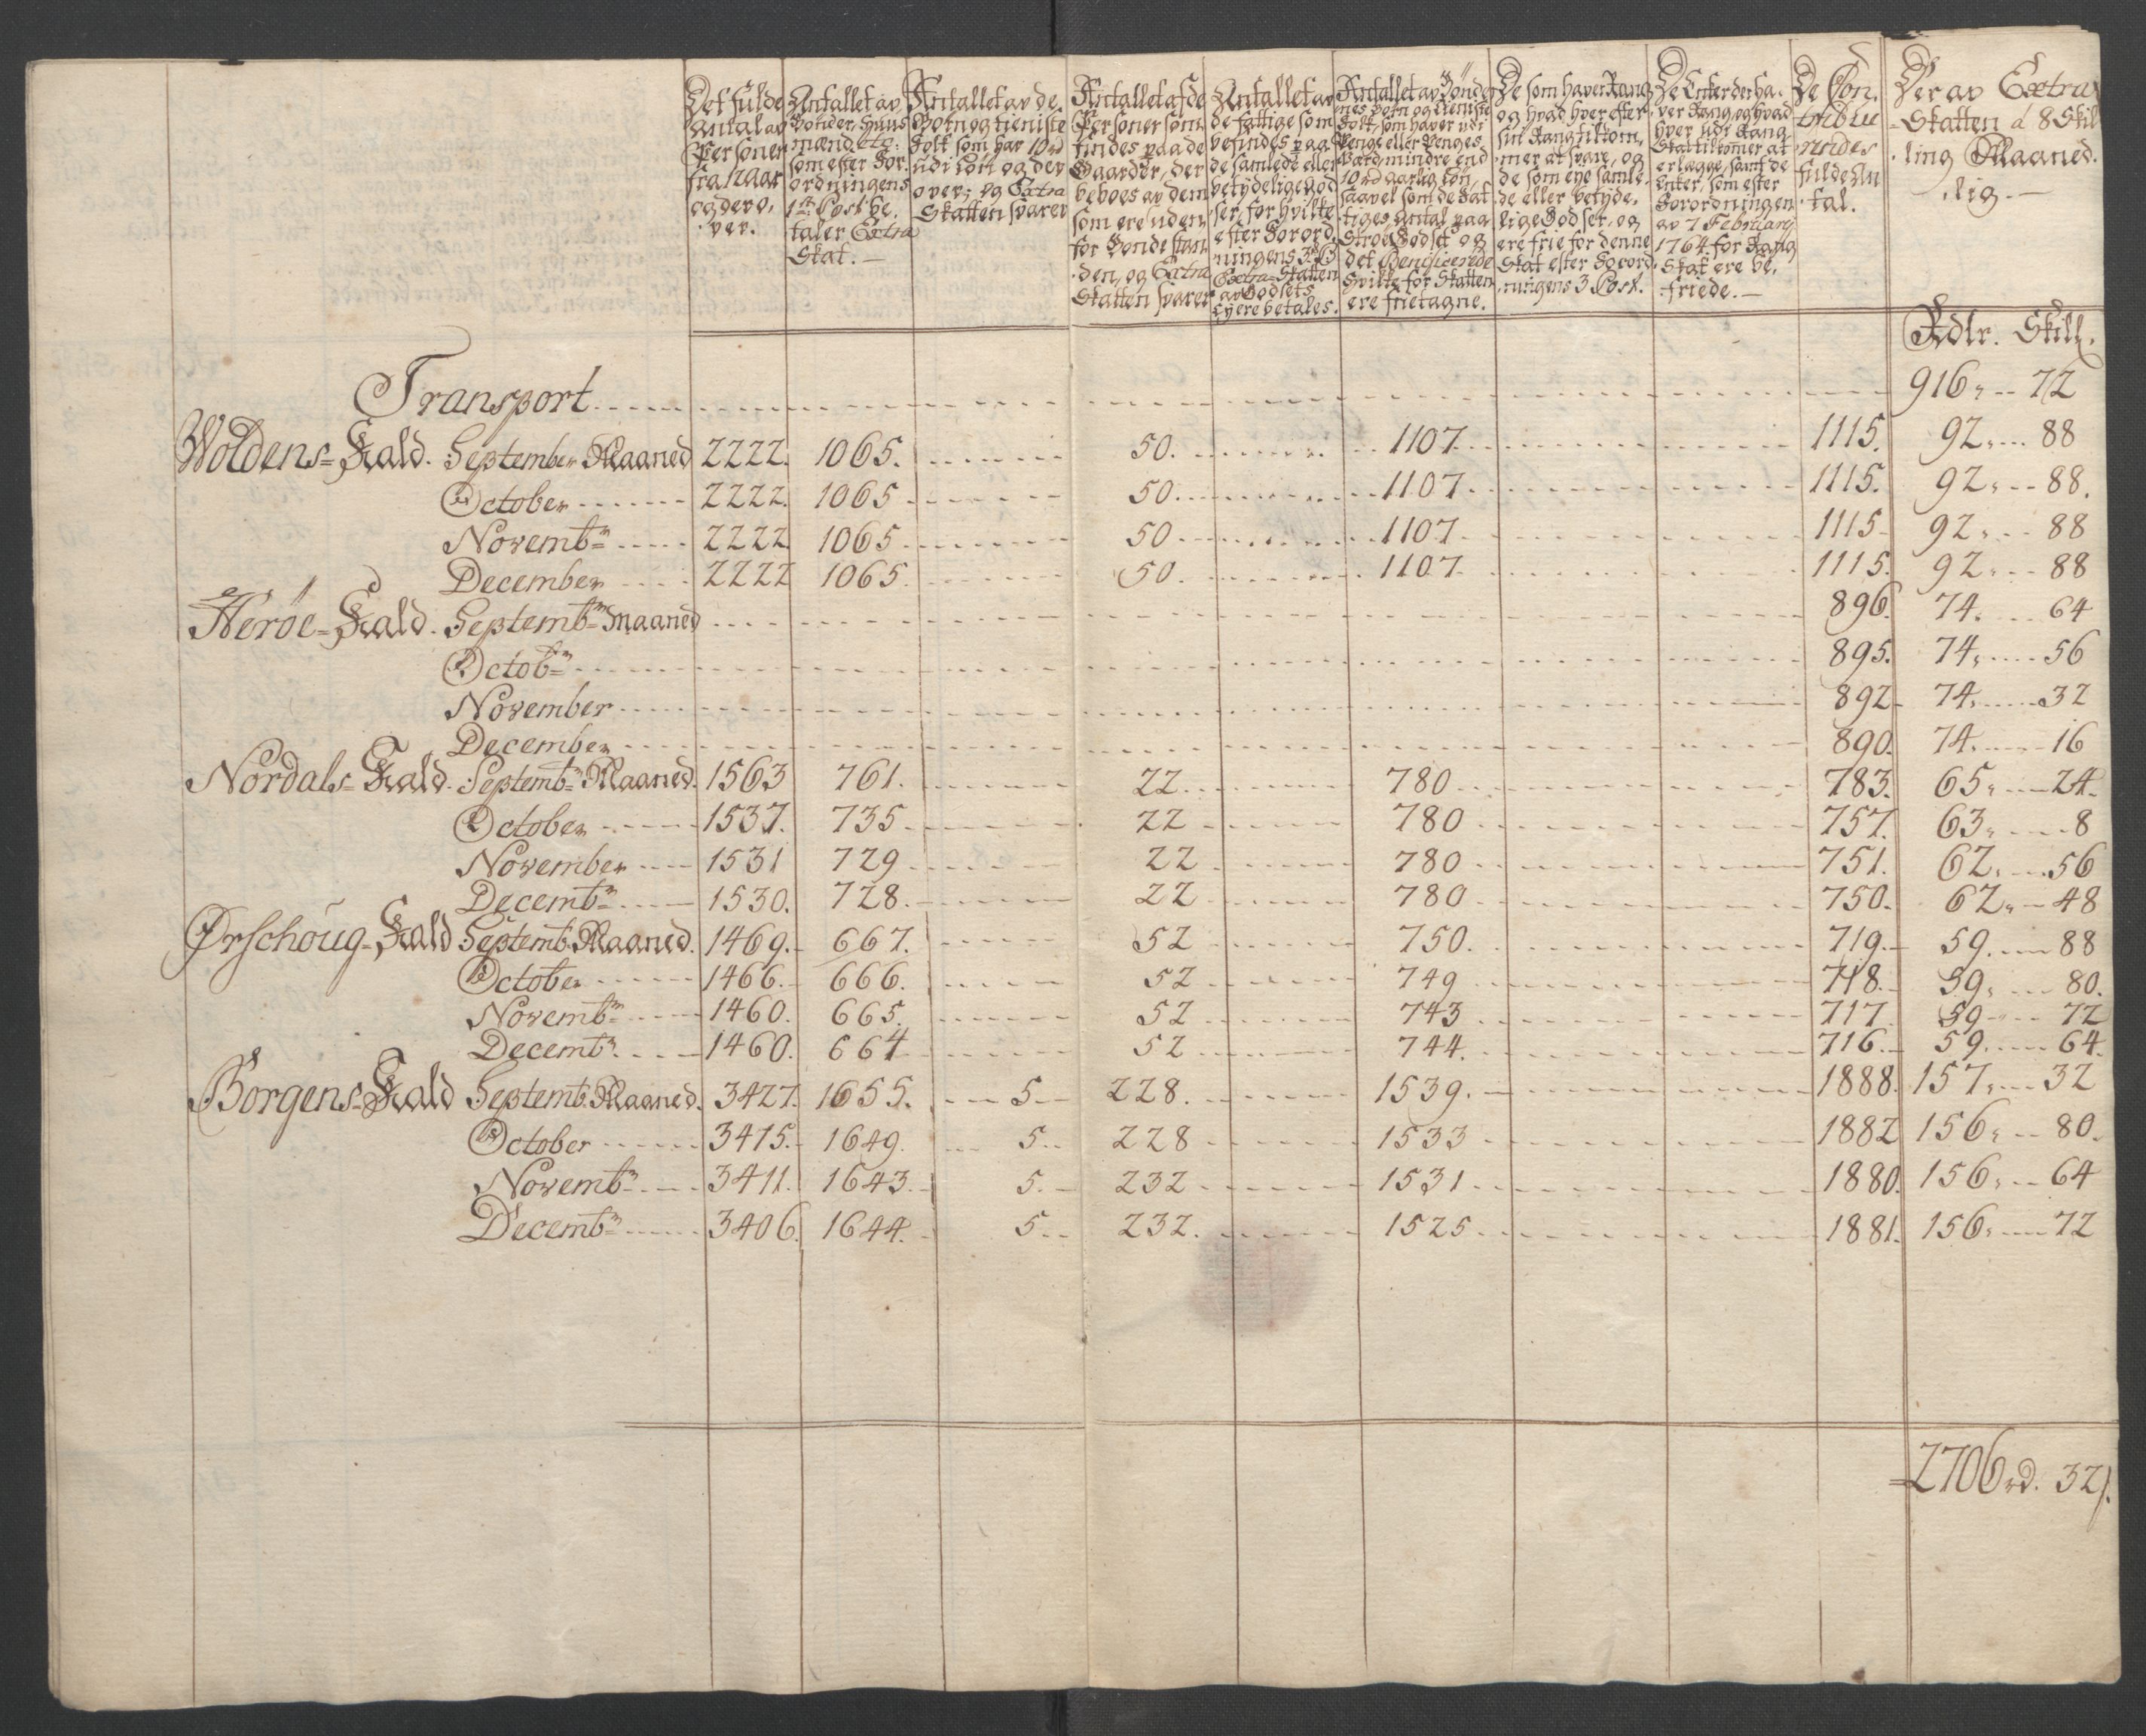 Det fulde
Antal av
Persohner
fra 12 aar
og dero,
ver.
Antallet av
Bønder, Huus
mænd etc:
som efter For,
ordningens
1ste Post be,
taler Extra
Skat. —
Antallet av de
Børn og tieniste
Folk som har 10 rd
udi løn og der
over; og Extra
Skatten svarer
Antallet af de
Personer som
findes paa de
Gaarder, der
beboes av dem
som ere uden,
for Bonde stan,
den, og Extra
Skatten svarer
Antallet av
de fattige som
befindes paa
de samlede eller
betydelige God,
ser, for hvilke
efter Forord,
ningens 3die P
Extra-Skatten
av Godsets
Eyere betales.
Antallet av Bønder,
nes Børn og tieniste
Folk, som haver udi
Penge eller Penges
Værd, mindre end
10 rd aarlig løn,
saavel som de Fat,
tiges Antal paa
Strøe Godset og
det Beneficerede
Hvilke for Skatten
ere frietagne.
De som haver Rang
og hvad hver efter
sin Rang tilkom,
mer at svare, og
de som eye samle,
de eller betyde,
lige Godser, og
ere frie for denne
Skat efter Forord,
ningens 3 Post.
De Enker der ha,
ver Rang, og hvad
hver udi Rang
Skat tilkomer at
erlægge, samt de
Enker, som efter
Forordningen
av 7 February
1764 for Rang
Skat ere be,
friede. —
De Con,
tribue
rendes
fulde An
tal.
Der av Extra
Skatten á 8 Skil
ling Maaned,
lig. —
Rdlr. Skill.
Transport 916 72
Woldens-Gield. September Maaned 2222. 1065. 50. 1107 1115. 92 88
October 2222. 1065 50. 1107 1115. 92 88.
Novembr 2222 1065 50 1107 1115 92 88
December 2222 1065 50. 1107 1115. 92 88
Herøe-Gield. Septembr Maaned 896. 74. 64
Octobr 895. 74 56
November 892 74 32
December 890. 74 16
Nordals-Gield. Septembr Maaned. 1563 761. 22 780 783. 65 24.
October 1537. 735 22 780 757. 63 8
November 1531 729 22 780 751. 62 56
Decembr 1530. 728. 22 780 750. 62 48
Ørschoug-Gield Septemb. Maaned. 1469. 667. 52 750. 719. 59. 88
October 1466. 666. 52 749 718. 59 80.
Novembr 1460. 665. 52 743 717 59 72
Decembr 1460. 664 52 744. 716. 59. 64.
Borgens-Gield Septemb. Maaned. 3427. 1655. 5 228. 1539. 1888. 157 32
October 3415. 1649. 5 228 1533 1882 156 80.
Novembr 3411. 1643. 5. 232 1531 1880. 156 64
Decembr 3406. 1644. 5 232. 1525 1881. 156 72
2706 rd. 32 s.